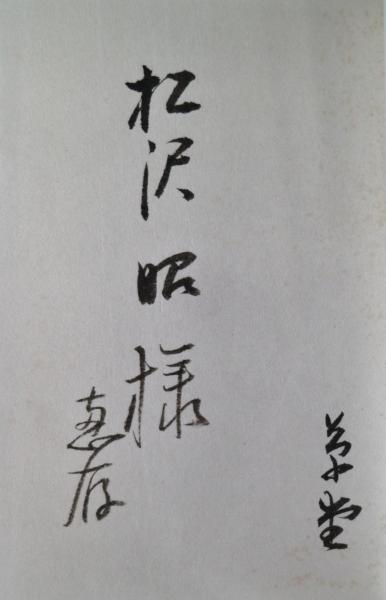 松沢昭様
恵存
草堂